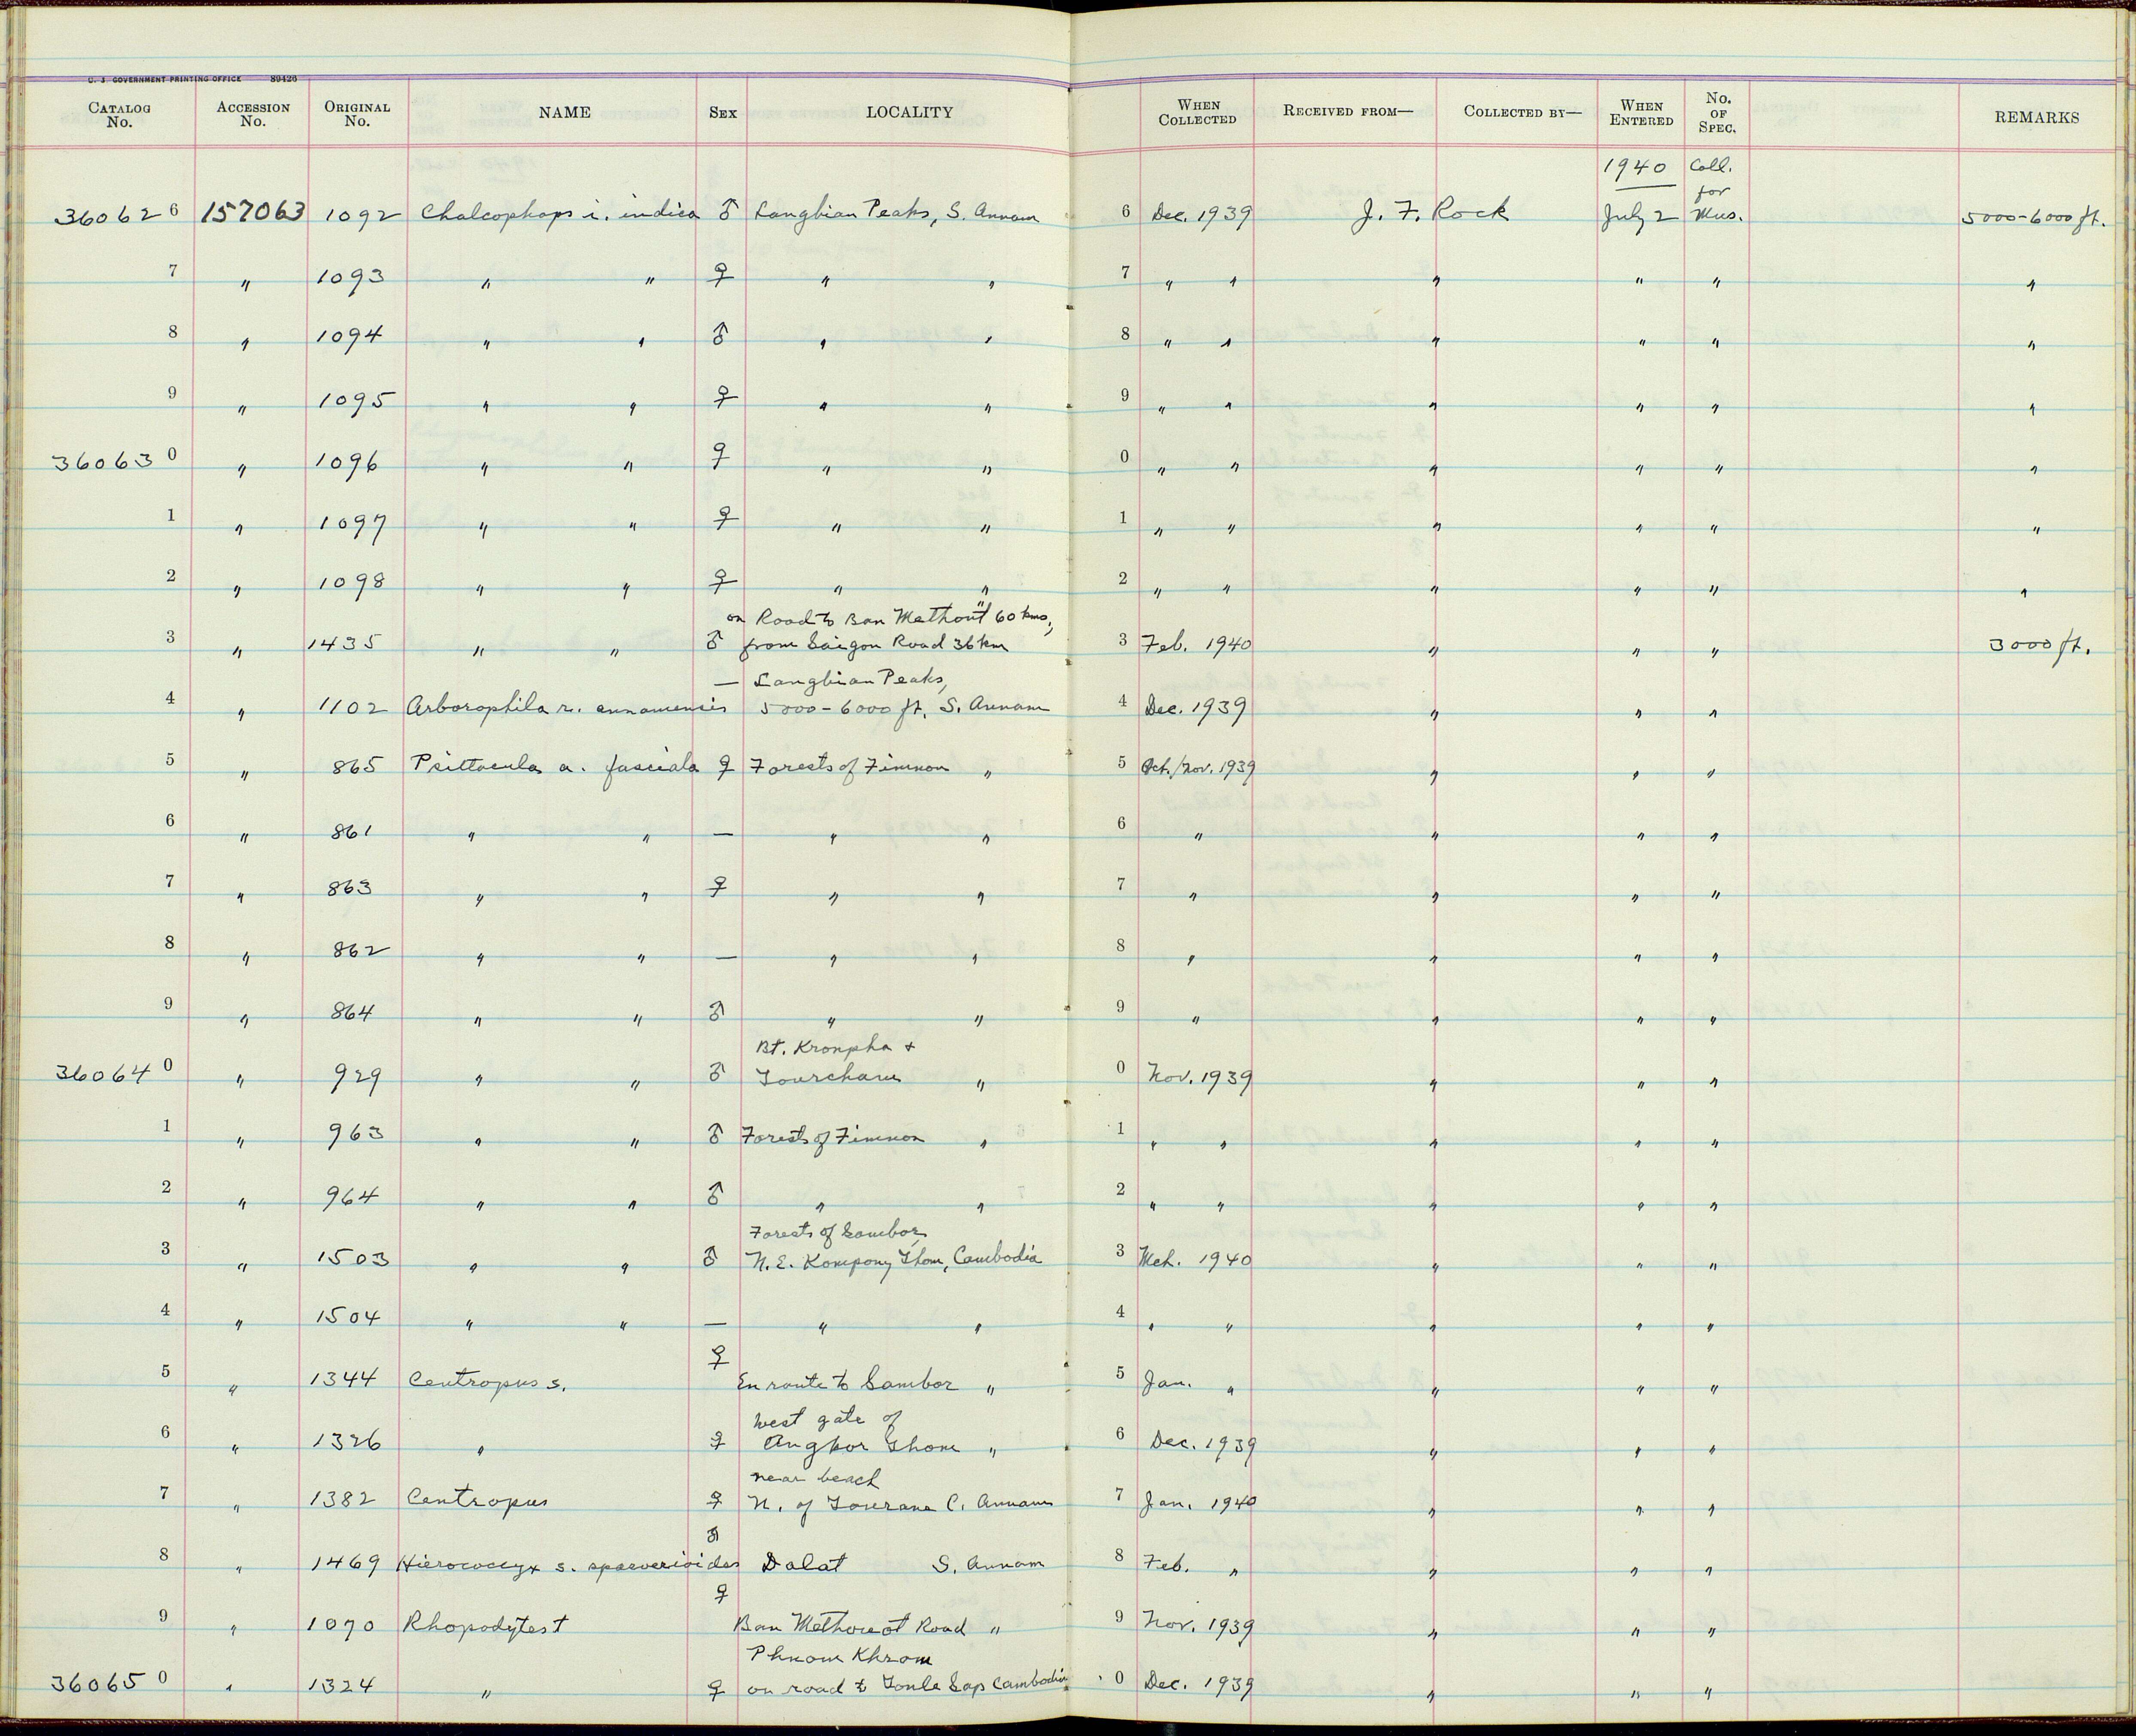 U. S. GOVERNMENT PRINTING OFFICE 89426
CATALOG No. ACCESSION No. ORIGINAL No. NAME SEX LOCALITY WHEN COLLECTED RECEIVED FROM— COLLECTED BY— WHEN ENTERED No. OF SPEC. REMARKS
1940 Coll.
for
36062 6 157063 1092 Chalcophaps i. indica ♂ Langbian Peaks, S. Annam 6 Dec. 1939 J. F. Rock July 2 Mus. 5000-6000 ft.
7 " 1093 " " ♀ " " 7 " " " " " "
8 " 1094 " " ♂ " " 8 " " " " " "
9 " 1095 " " ♀ " " 9 " " " " " "
36063 0 " 1096 " " ♀ " " 0 " " " " " "
1 " 1097 " " ♀ " " 1 " " " " " "
2 " 1098 " " ♀ " " 2 " " " " " "
on Road to Ban Methout 60 kms,
3 " 1435 " " ♂ from Saigon Road 36 km 3 Feb. 1940 " " " 3000 ft.
— Langbian Peaks,
4 " 1102 Arborophila r. annamensis 5000-6000 ft. S. Annam 4 Dec. 1939 " " "
5 " 865 Psittacula a. fasciata ♀ Forests of Fimnon " 5 Oct./Nov. 1939 " " "
6 " 861 " " — " " 6 " " " "
7 " 863 " " ♀ " " 7 " " " "
8 " 862 " " — " " 8 " " " "
9 " 864 " " ♂ " " 9 " " " "
Bt. Kronpha +
36064 0 " 929 " " ♂ Tourcham " 0 Nov. 1939 " " "
1 " 963 " " ♂ Forests of Fimnon " 1 " " " " "
2 " 964 " " ♂ " " 2 " " " " "
Forests of Sambor,
3 " 1503 " " ♂ N. E. Kompong Thom, Cambodia 3 Mch. 1940 " " "
4 " 1504 " " — " " 4 " " " " "
♀
5 " 1344 Centropus s. En route to Sambor " 5 Jan. " " " "
West gate of
6 " 1326 " ♀ Angkor Thom " 6 Dec. 1939 " " "
near beach
7 " 1382 Centropus ♀ N. of Tourane C. Annam 7 Jan. 1940 " " "
♂
8 " 1469 Hierococcyx s. sparverioides Dalat S. Annam 8 Feb. " " " "
♀
9 " 1070 Rhopodytes t Ban Methouot Road " 9 Nov. 1939 " " "
Phnom Khrom
36065 0 " 1324 " ♀ on road to Tonle Sap Cambodia 0 Dec. 1939 " " "